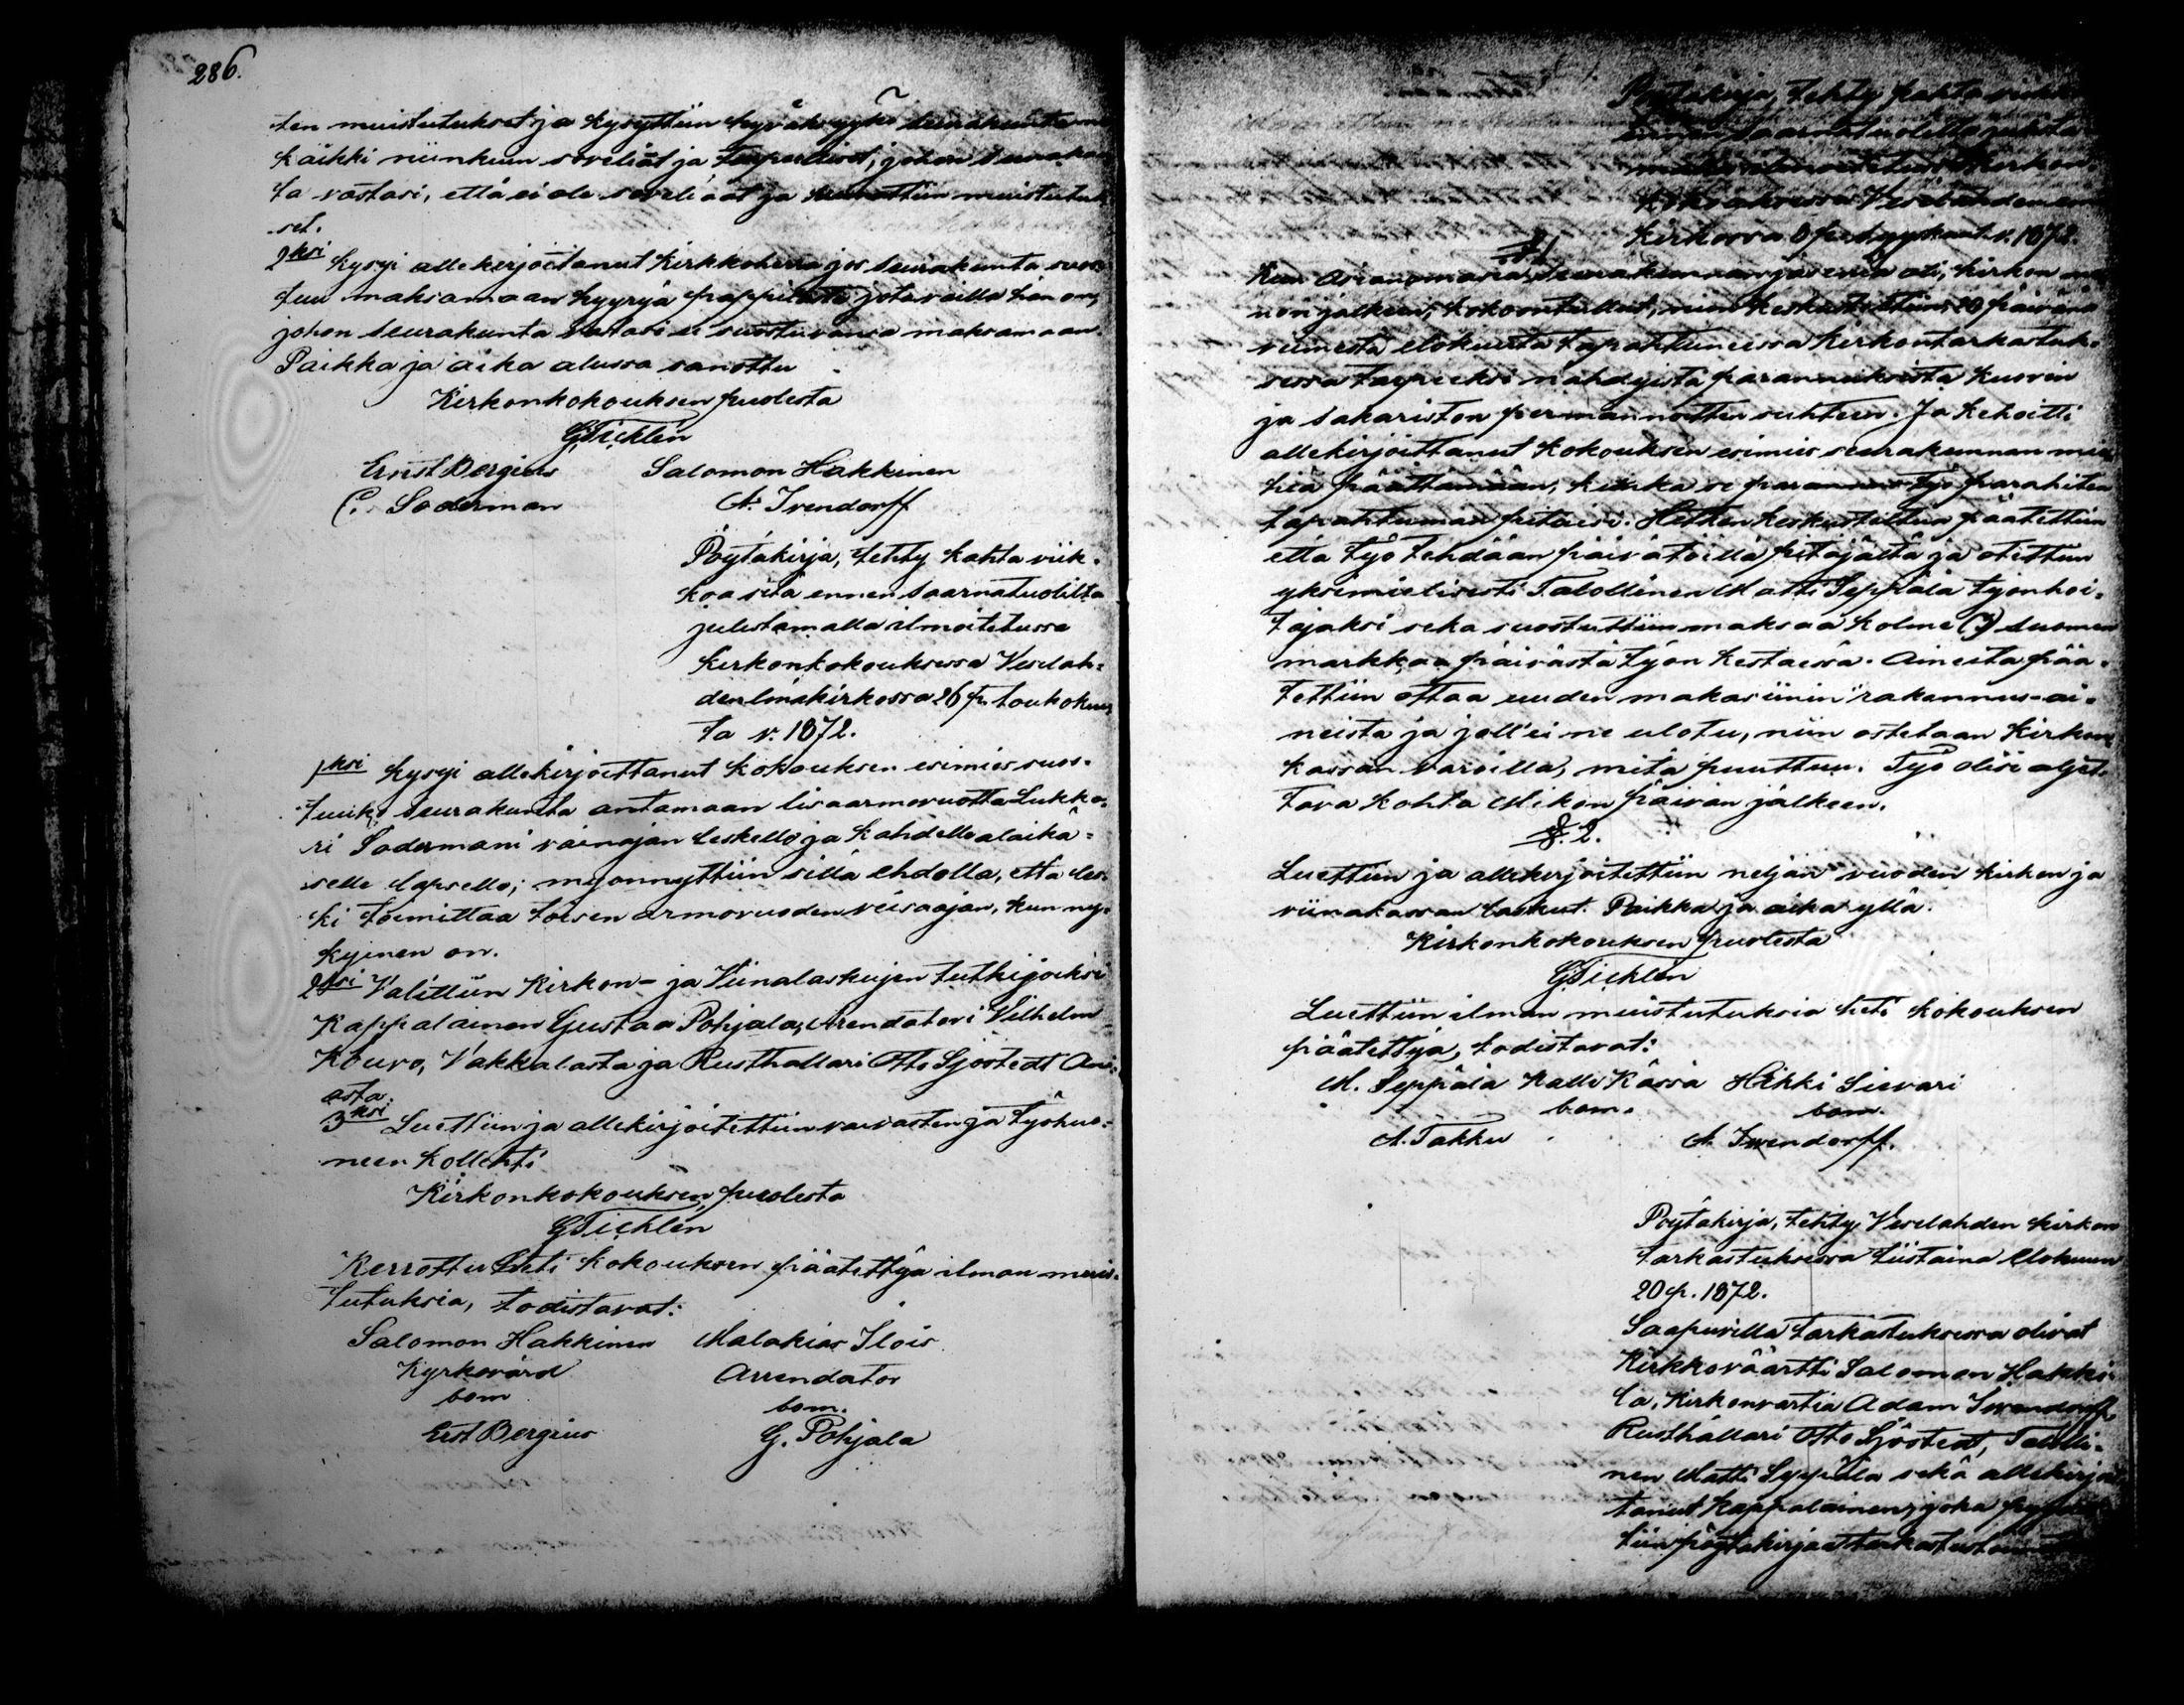 286.
ten muistutukset ja kysyttiin hyväksyykö seurakunta ne
kaikki niinkuin soveliat ja tarpeelliset, johon seurakun
ta vastasi, että ei ole soveliaat ja muistutuk
set.
2ksi Kysyi allekirjoittanut Kirkkoherra jos seurakunta suos
tuu maksamaan hyyryä pappilasta jota vailla hän on,
johon seurakunta vastasi ei suostuvansa maksamaan.
Paikka ja aika alussa sanottu
Kirkonkokouksen puolesta
G Tichlén
Ernst Bergius Salomon Hakkinen
C. Soderman A. Ivendorff
Pöytäkirja, tehty kahta viik-
koa sitä ennen saarnatuolilta
julistamalla ilmoitetussa
Kirkonkokouksessa Vesilah-
den Emäkirkossa 26 p. toukokuu
ta v. 1872.
1ksi Kysyi allekirjoittanut Kokouksen esimies suos-
tuuko seurakunta antamaan lisaarmovuotta Lukka-
ri Sodermani vainajan leskelle ja kahdelle alaikä-
selle lapselle; myönnyttiin sillä ehdolla, että les-
ki toimittaa toisen armovuoden veisaajan, kun ny-
kyinen on.
2ksi Valittiin Kirkon- ja Viinalaskujen tutkijoiksi
Kappalainen Gustaa Pohjala, Arendatori Vilhelm
Kouvo, Vakkalasta ja Rusthallari Otto Sjöstedt Ani-
asta.
3ksi Luettiin ja allekirjoitettiin vaivasten ja työhuo-
neen Kollehti
Kirkonkokouksen puolesta
G Tichlén
Kerrottu heti Kokouksen päätettyä ilman muis-
tutuksia, todistavat:
Salomon Hakkinen Malakias Ilois
Kyrkovärd Arrendator
bom bom.
Erst Bergius G. Pohjala
Pöytäkirja, tehty kahta viikk
ennen saarnatuolilta julista
malla ilmoitetussa Kirkon
Kokouksessa Vesilahden
Kirkossa 8 p. syyskuut. v. 1872.
§ 1
Kun asianomaisia seurakunnan jäseniä oli, kirkon me
non jälkeen, kokoontullut, niin keskusteltiin 20 päivänä
viimestä elokuuta tapahtuneessa Kirkontarkastuk-
sessa tarpeeksi nähdyistä parannuksista Kuorin
ja sakariston permannoitten suhteen. Ja kehoitti
allekirjoittanut Kokouksen esimies seurakunnan mie
hiä päättämään, kuinka se parannus työ parahiten
tapahtuman pitäisi. Hetken keskusteltua päätettiin
että työ tehdään päivätöillä pitäjältä ja otettiin
yksimielisesti Talollinen Matti Seppälä työnhoi-
tajaksi sekä suostuttiin maksaa Kolme (3) Suomen
markkaa päivästä työn kestäessä. Aineista pää-
tettiin ottaa uuden makasiinin rakennus-ai-
neista ja joll'ei ne ulotu, niin ostetaan Kirkon
kassan varoilla, mitä puuttuu. Työ olisi aljet-
tava kohta Mikon päivän jälkeen.
§. 2.
Luettiin ja allekirjoitettiin neljän vuoden kirkon ja
viinakassan laskut. Paikka ja aika yllä.
Kirkonkokouksen puolesta
G Tichlén
Luettiin ilman muistutuksia heti kokouksen
päätettyä, todistavat:
M. Seppälä Kalli Kässä Heikki Sievari
bom. bom.
A. Takku A. Ivendorff.
Pöytäkirja, tehty Vesilahden Kirkon
tarkastuksessa tiistaina Elokuun
20 p. 1872.
Saapuvilla tarkastuksessa olivat
Kirkkoväärtti Salomon Hakki-
la, Kirkonvartia Adam Ivendorff,
Rusthallari Otto Sjöstedt, Talolli-
nen Matti Seppälä sekä allekirjoit
tanut Kappalainen, joka
tiin pöytäkirjaa